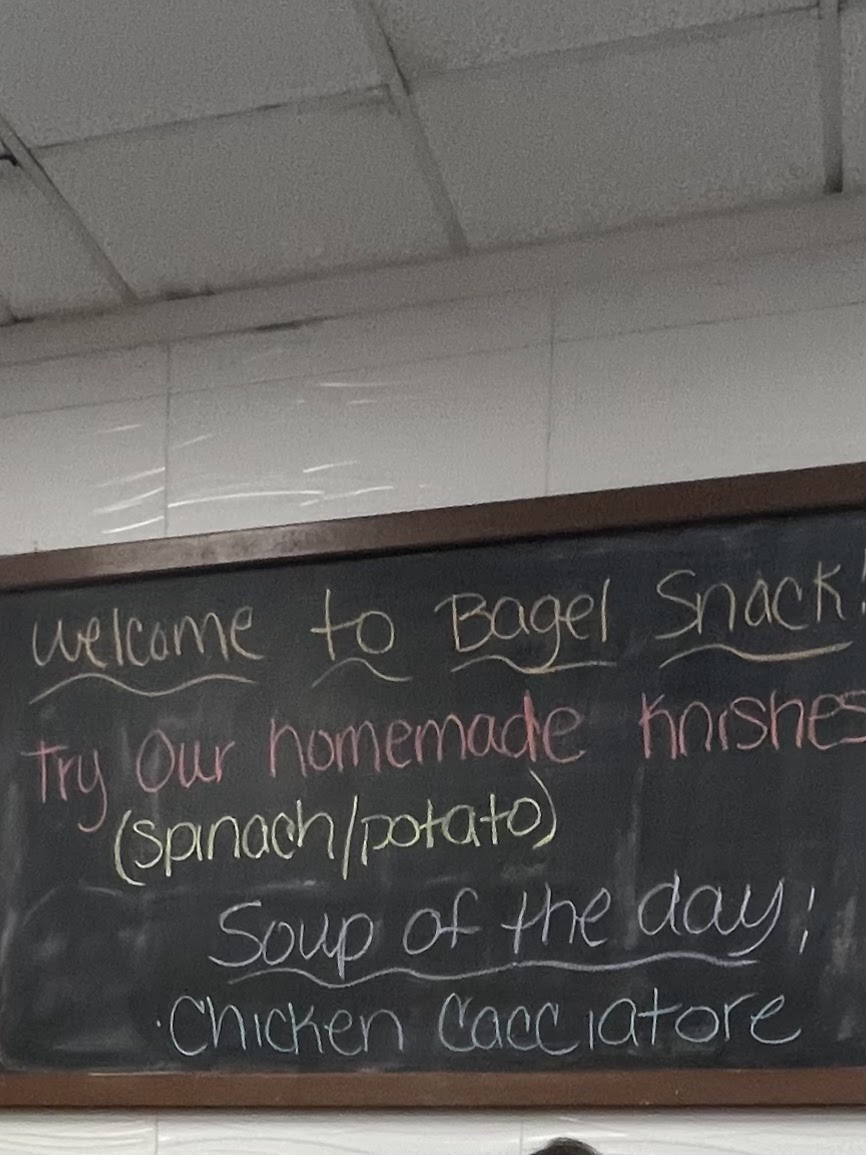 Welcome to Bagel Snack!
Try Our homemade Knishes
(spinach/potato)
Soup of the day:
·Chicken Cacciatore